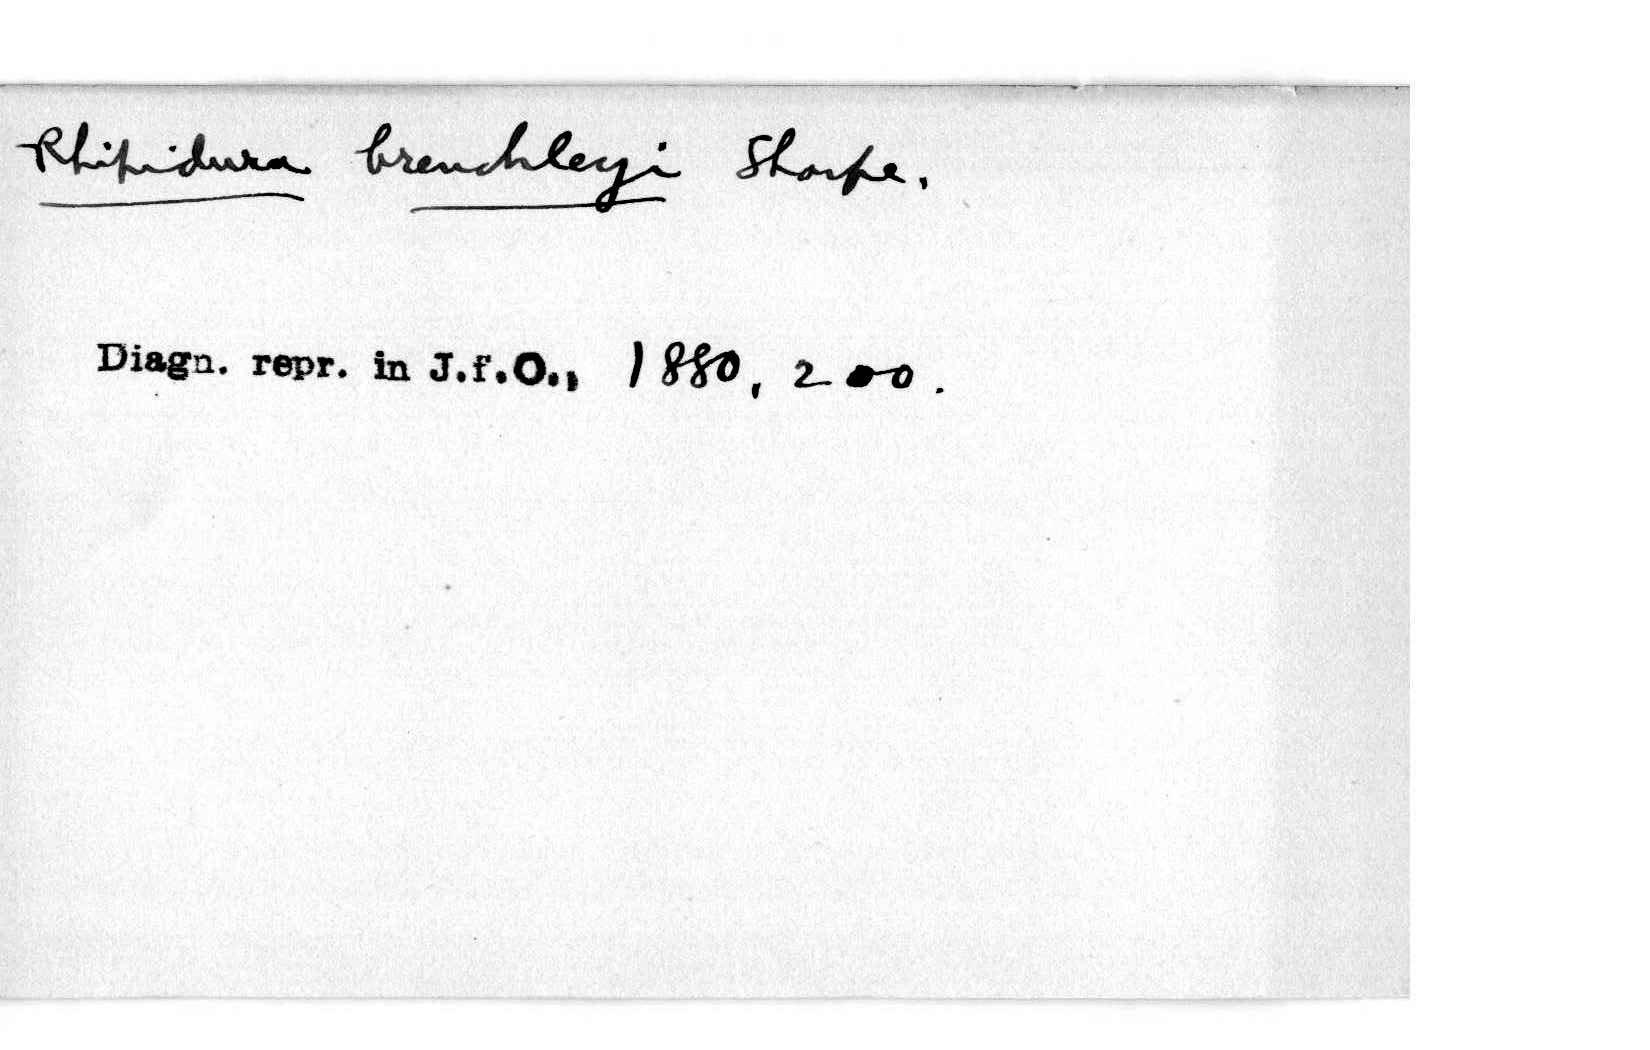 Rhipidura brenchleyi Sharpe.
Diagn. repr. in J.f.O., 1880, 200.